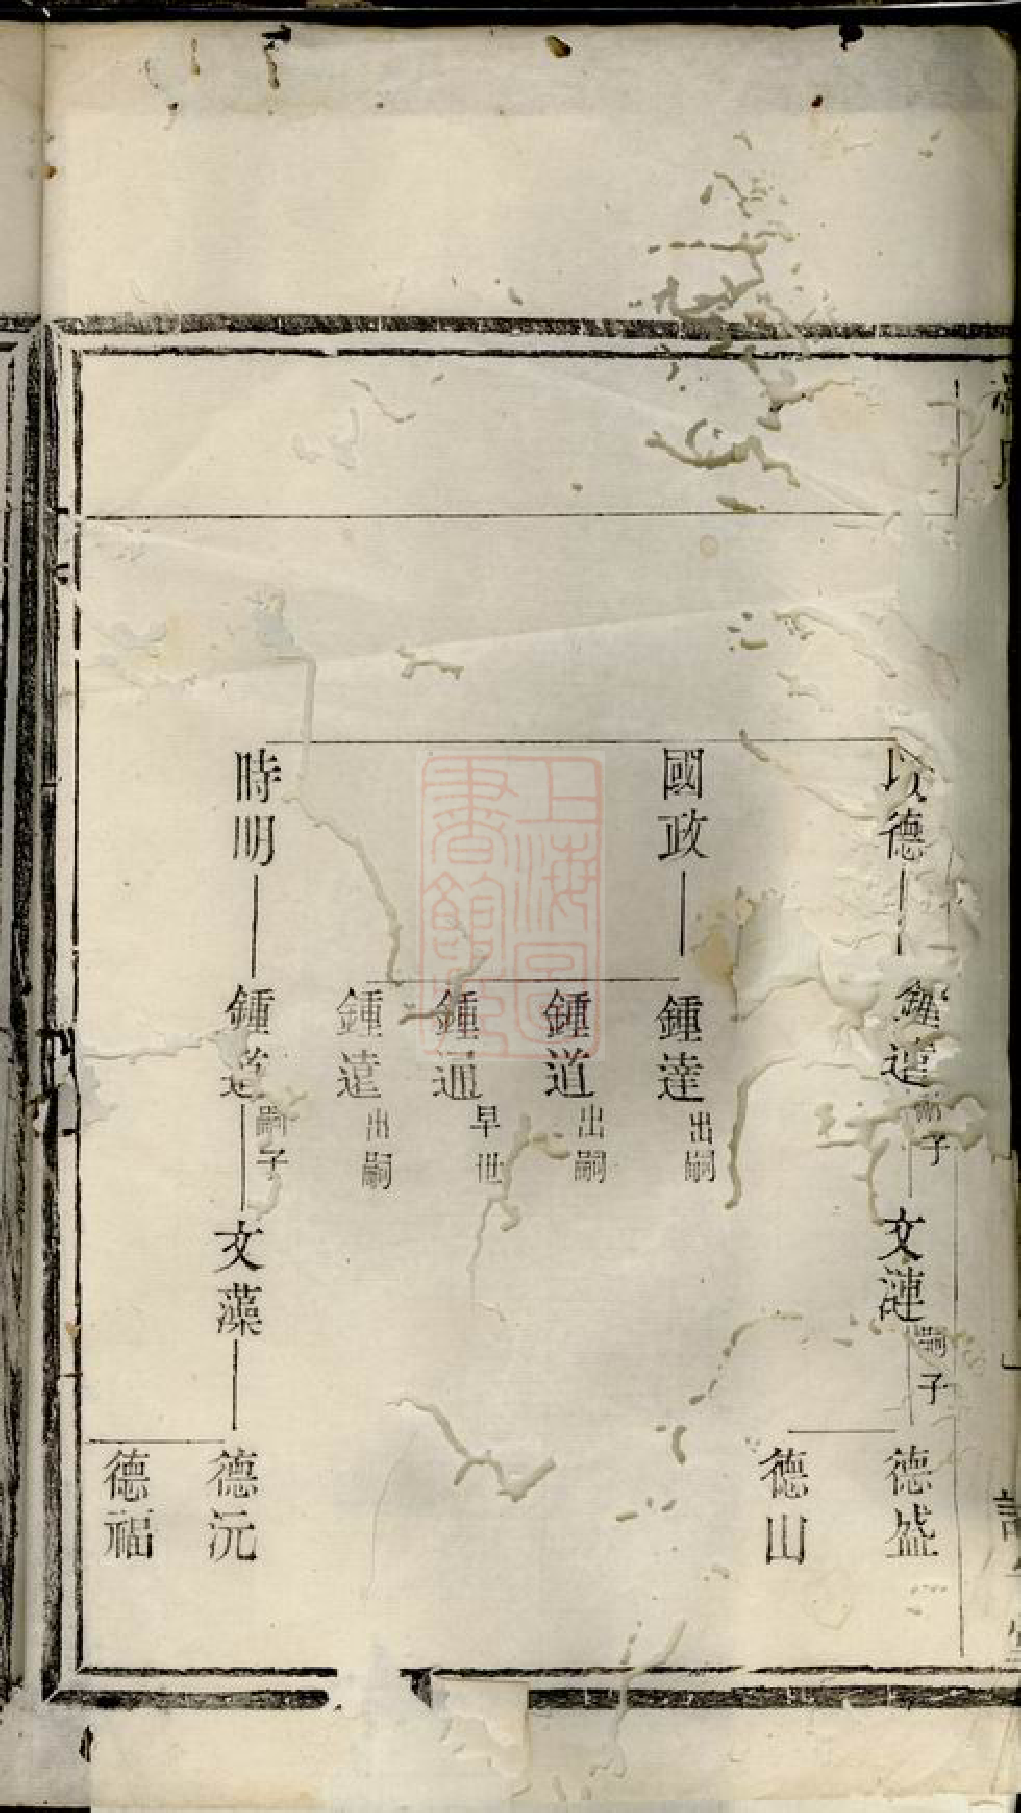 以德
國政
時明
鍾道
嗣子
鍾達
出嗣
鍾道
出嗣
鍾通
早世
鍾遠
出嗣
鍾
嗣子
文漣
嗣子
文藻
德盛
德山
德沅
德福
上海圖
書館藏